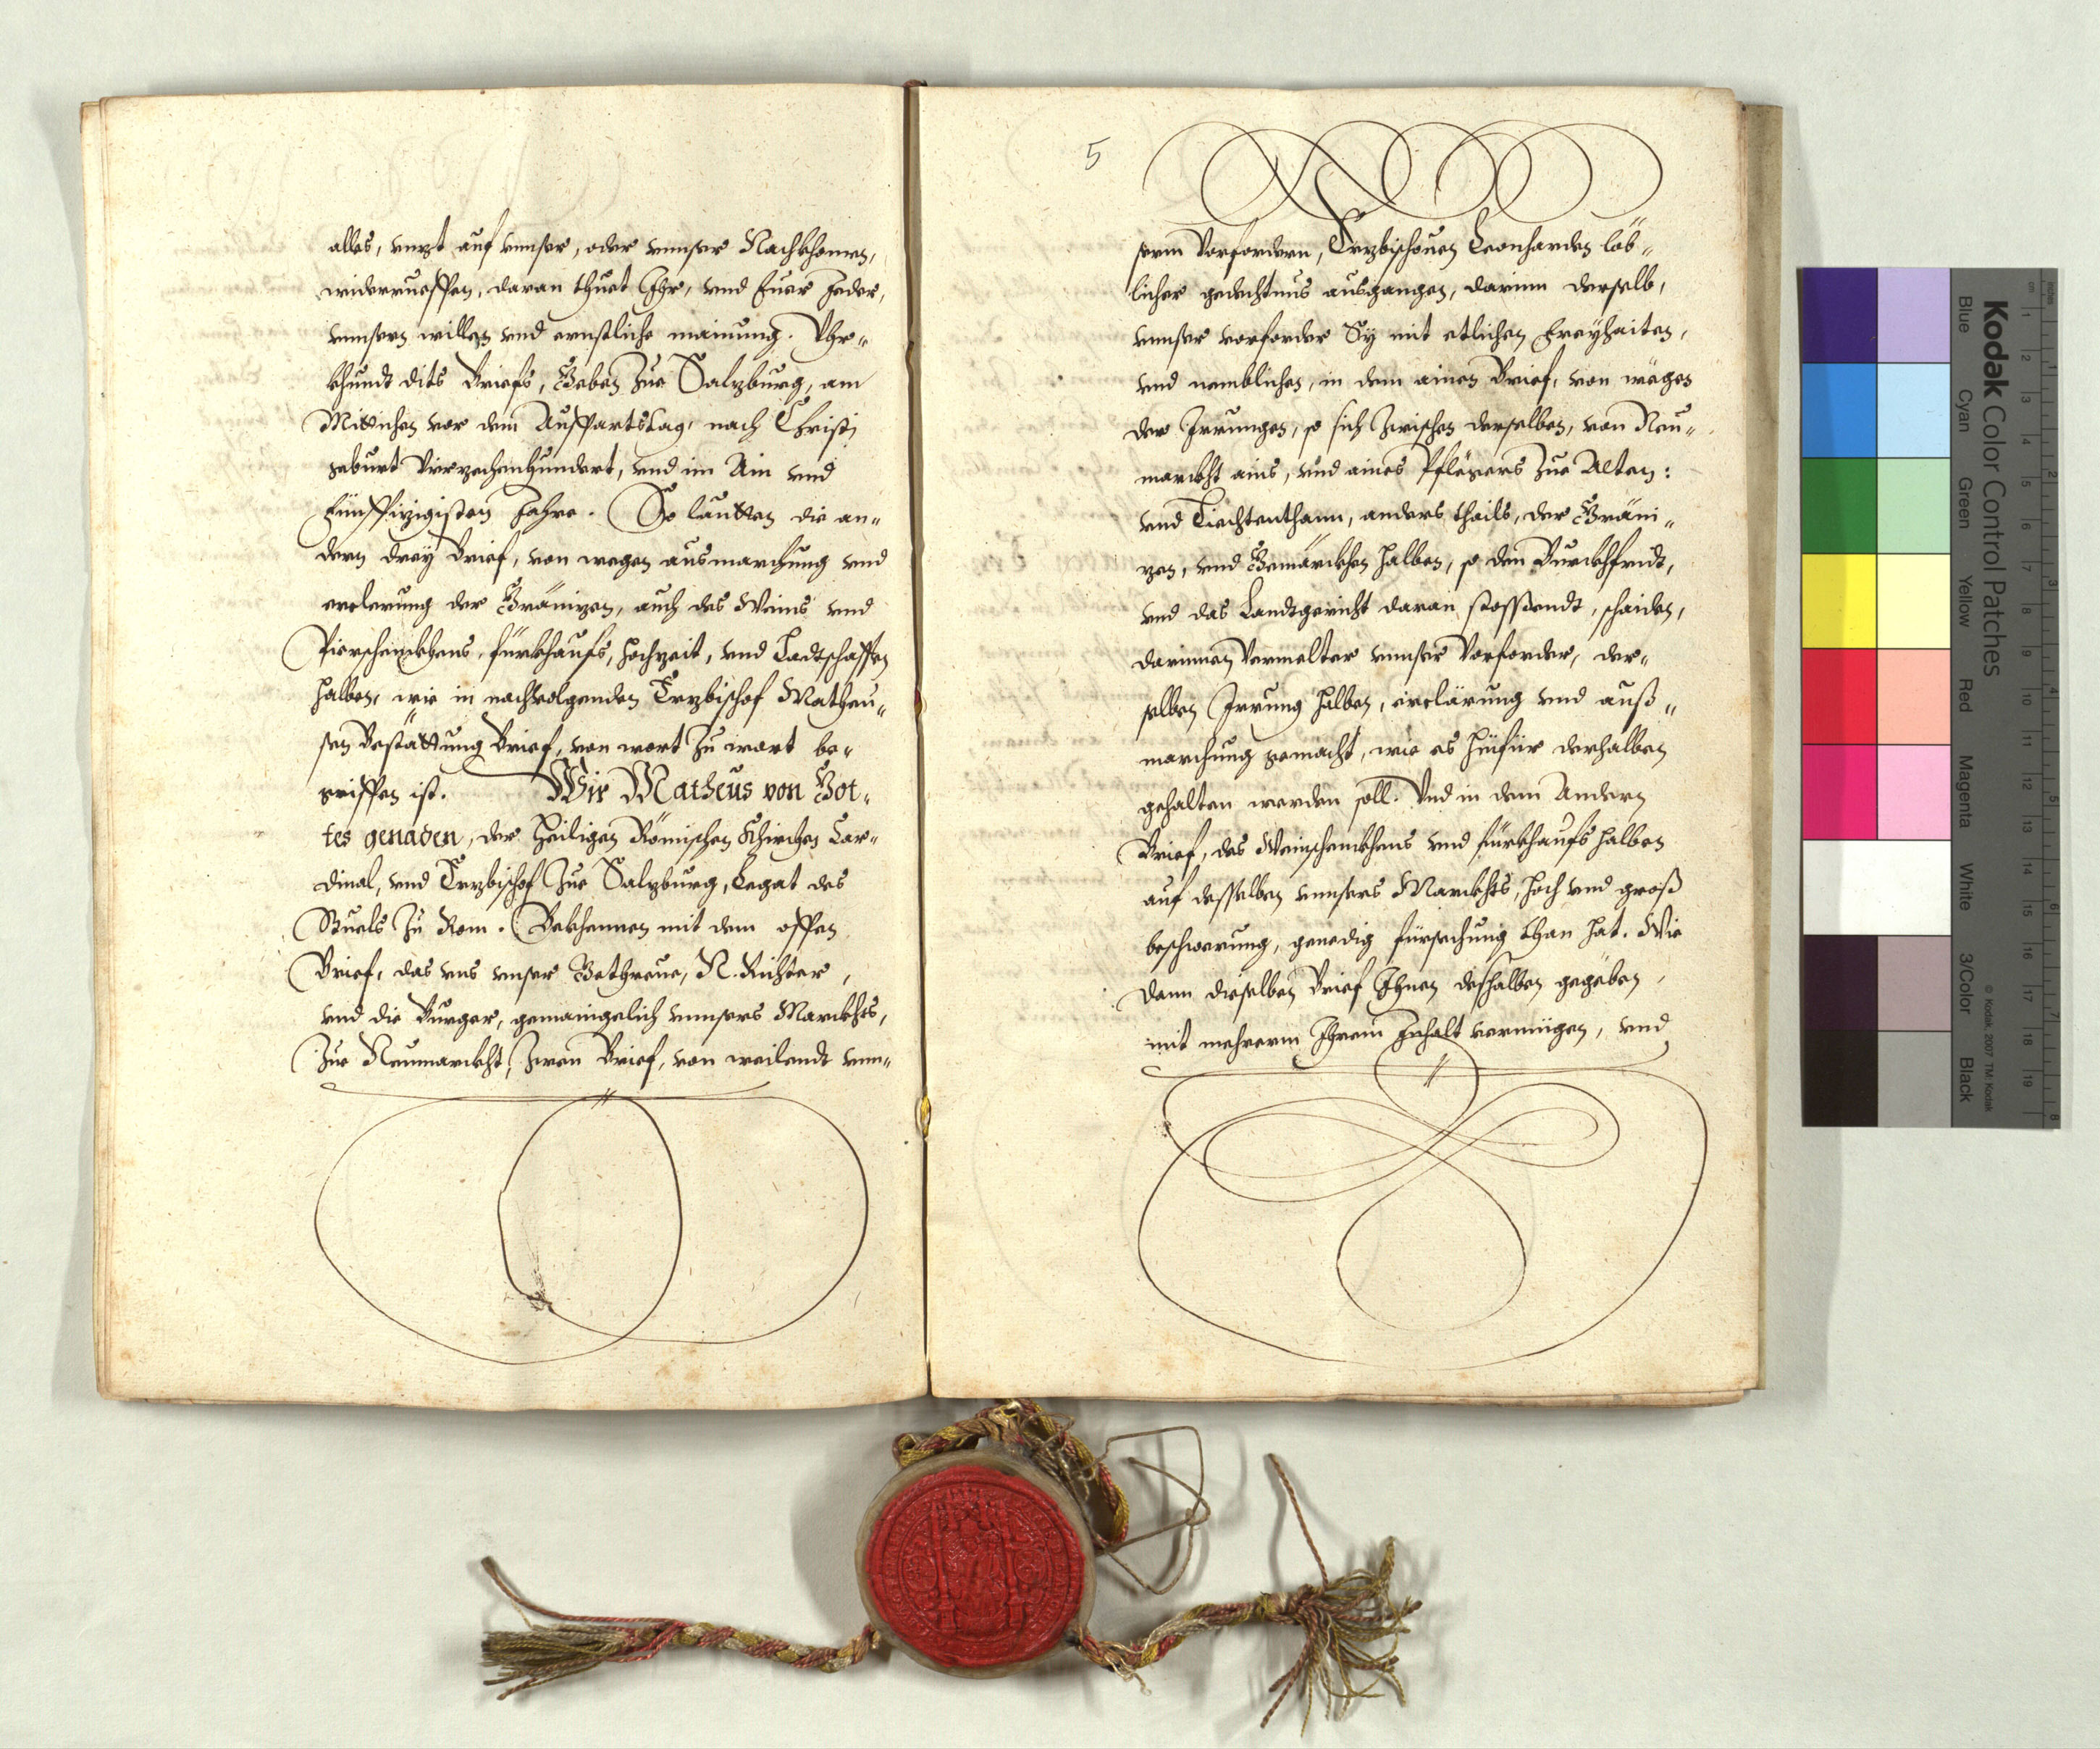 alles, vnzt auf vnnser, oder vnnser Nachkhomen,
widerrueffen, daran thuet Ihr, vnd Euer Jeder,
vnnsern willen vnd ernstliche mainung. Vhr„
khundt dits Briefs, Geben Zue Salzburg, am
Mittichen vor dem Auffartstag, nach Christi
geburt Vierzechenhundert, vnd im Ain vnd
Fünffzigisten Jahre. So lautten die an„
dern drey Brief, von wegen ausmarchung vnd
erclerung der Gränizen, auch des Weins vnd
Pierschenkhens, fürkhaufs, hochzeit, vnd Ladtschafften
halben, wie in nachvolgenden Erzbischof Matheu„
sen Bestättung Brief, von wort zu wort be„
griffen ist. Wir Matheus von Got„
tes genaden, der Heiligen Römischen Khirchen Car„
dinal, vnd Erzbischof Zue Salzburg, Legat des
Stuels Zu Rom. Bekhennen mit dem offen
Brief, das vns vnser Gethreue, N. Richter,
vnd die Burger, gemainigelich vnnsers Marckhts,
Zue Neumarckht, Zwen Brief, von weilendt vnn„
5
serm Vorfordern, Erzbischouen Leonharden löb„
licher gedechtnus ausgangen, darinn derselb,
vnnser vorforder Sy mit etlichen Freyhaiten,
vnd nemblichen, in dem ainen Brief, von wegen
der Irrungen, so sich Zwischen derselben, von Neu„
marckht ains, vnd aines Pflegers Zue Alten:
vnd Liechtenthann, anders thails, der Gräni„
zen, vnd Gemärckhen halben, so den Burckhfridt,
vnd das Landtgericht daran stossendt, schaiden,
darinnen Vermelter vnnser Vorforder, der„
selben Irrung halben, erclärung vnd auß„
marchung gemacht, wie es hinfür derhalben
gehalten werden soll. Vnd in dem Andern
Brief, des Weinschenkhens vnd fürkhaufs halben
auf desselben vnnsers Marckhts, hoch vnd groß
beschwerung, genedig fürsechung than hat. Wie
dann dieselben Brief Ihnen deshalben gegeben,
mit mehrerm Ihrem Inhalt vermügen, vnd
Kodak Color Control Patches
Blue Cyan Green Yellow Red Magenta White 3/Color Black
© Kodak, 2007 TM: Kodak
cm 1 2 3 4 5 6 7 8 9 10 11 12 13 14 15 16 17 18 19
inches 1 2 3 4 5 6 7 8